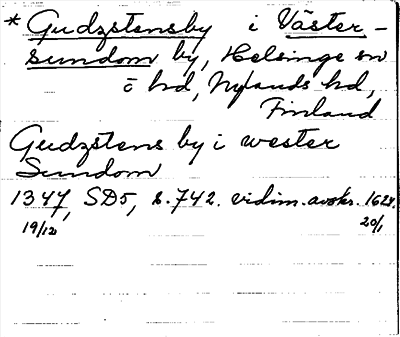 * Gudzstensby i Väster-
sundom by, Helsinge sn
o hd, Nylands hd,
Finland
Gudzstens by i wester
Sundom
1347, SD5, s. 742. vidim. avskr. 1628.
19/12 20/1